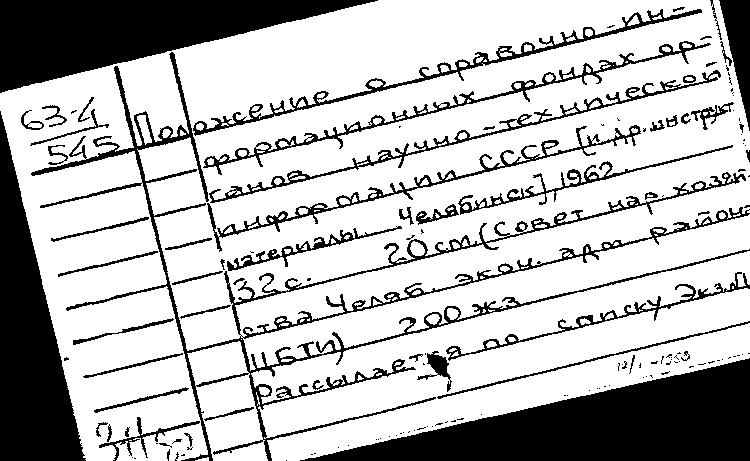 63-4
545
Положение о справочно-ин-
формационных фондах ор-
ганов научно-технической
информации СССР [и др. инструкт
материалы. Челябинск], 1962.
32 с. 20 см. (Совет нар хозяй-
ства Челяб. экон. адм района
ЦБТИ) 200 жз
Рассылается по списку. Экз.